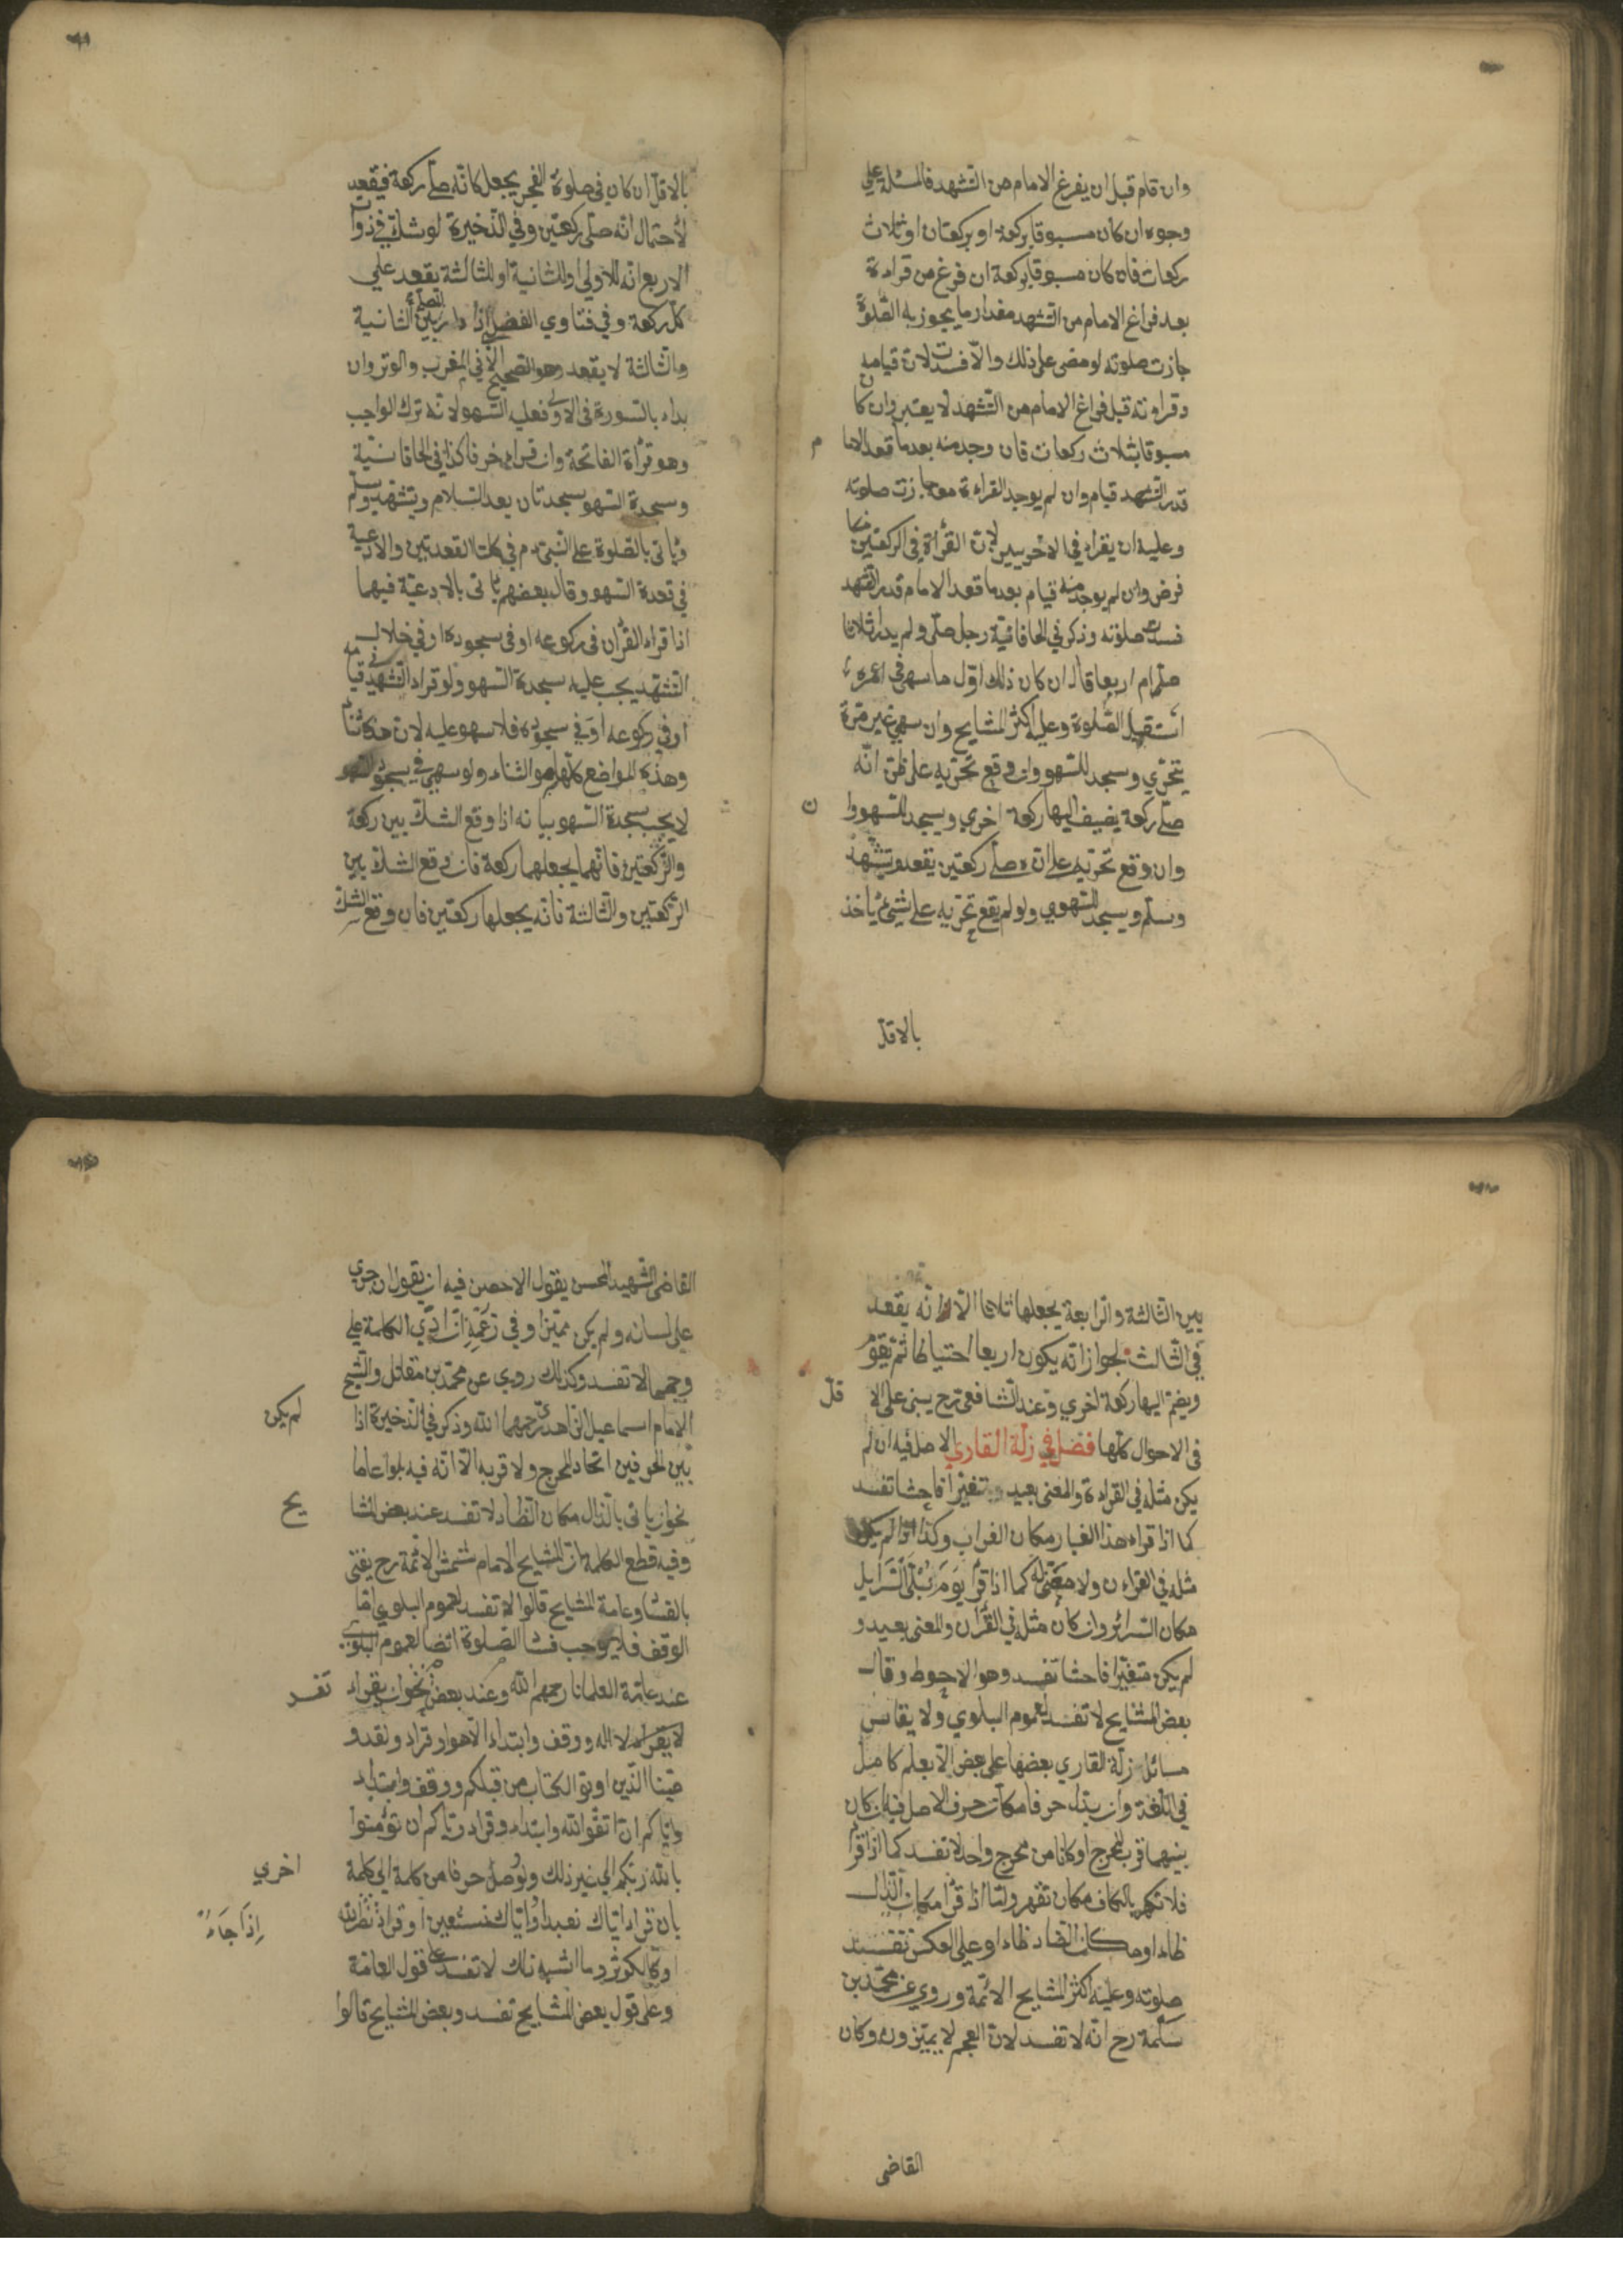 وان قام قبل ان يفرغ الامام من التشهد فالمسئلة علي
وجوه ان كان مسبوقا بركعة او بركعتان او ثلاث
ركعات فان كان مسبوقا بركعة ان فرغ من قراءة
بعد فراغ الامام من التشهد مقدار ما يجوز به الصلوة
جازت صلوته لو مضى على ذلك والا فسدت لان قيامه
وقراءته قبل فراغ الامام من التشهد لا يعتبر وان كان
مسبوقا بثلاث ركعات فان وجد منه بعد ما قعد الاما م
قدر التشهد قيام وان لم يوجد القراءة معها جازت صلوته
وعليه ان يقراء في الاخريين لان القراة في الركعتين
فرض وان لم يوجد منه قيام بعد ما قعد الامام قدر التشهد
فسدت صلوته وذكر في الخاقانية رجل صلى ولم يدر اثلاثا
صلى ام اربعا قال ان كان ذلك اول ما سهى في عمره
استقبل الصلوة وعليه اكثر المشايح وان سهى غير مرة
يتحري وسجد للسهو وان وقع تحريه على ظن انه
صلى ركعة يضيف اليها ركعة اخري ويسجد للسهو وا ن
وان وقع تحريه على انه صلى ركعتين يقعد ويتشهد
وسلم ويسجد للسهوي ولو لم يقع تحريه على شئ ياخذ
بالاقل
بالاقل ان كان في صلوة الفجر يجعل كانه صلى ركعة فيقعد
لاحتمال انه صلى ركعتين وفي الذخيرة لو شك في ذوات
الاربع انه للاولى او للثانية او للثالثة يقعد علي
كل ركعة وفي فتاوي الفضلي اذا دار بين الثانية
والثالثة لا يقعد وهو الصحيح الا في المغرب والوتر وان
بداء بالسورة في الاولى فعليه السهو لانه ترك الواجب
وهو قرأة الفاتحة وان قراء حرفا كذا في الخاقانية
وسجدة السهو سجدتان بعد السلام ويتشهد ويسلم
وياتى بالصلوة على النبي م في كلتا القعدتين والادعية
في قعدة السهو وقال بعضهم ياتى بالادعية فيهما
اذا قراء القرأن في ركوعه او في سجوده او في خلال
التشهد يجب عليه سجدة السهو ولو قراء التشهد في قيامه
او في ركوعه او في سجوده فلا سهو عليه لان هذا ثناء
وهذه المواضع كلها هو الثناء ولو سهى في سجود السهو
لا يجب سجدة السهو بيانه اذا وقع الشك بين ركعة
والركعتين فانهما يجعلهما ركعة فان وقع الشك بين
الركعتين والثالثة فانه يجعلها ركعتين فان وقع الشك
بين الثالثة والرابعة يجعلها ثلاثا الا انه يقعد
في الثالث لجواز انه يكون اربعا احتياطا ثم يقوم
ويضم اليها ركعة اخري وعند الشافعى رح يبنى على الا قل
في الاحوال كلها فصل في زلة القاري الاصل فيه ان لم
يكن مثله في القراءة والمعنى بعيد وتغيرا فاحشا تفسد
كما اذا قراء هذا الغبار مكان الغراب وكذا اذا لم يكن
مثله في القراءن ولا معنى له كما اذا قرأ يوم تبلى السرايل
مكان السرائر وان كان مثله في القرأن والمعنى بعيد و
لم يكن متغيرا فاحشا تفسد وهو الاحوط وقال
بعض المشايح لا تفسد لعموم البلوي ولا يقاس
مسائل زلة القاري بعضها على بعض الا بعلم كامل
في اللغة وان بدل حرفا مكان حرف الاصل فيه ان كان
بينهما قرب المخرج او كانا من مخرج واحد لا تفسد كما اذا قرأ
فلا تكهر بالكاف مكان تقهر ولما اذا قرأ مكان الذال
ظاء او مكان الضاد ظاء او على العكس تفسد
صلوته وعليه اكثر المشايح الائمة وروي عن محمد بن
سلمة رح انه لا تفسد لان العجم لا يميزون وكان
القاضى
القاضى الشهيد المحسن يقول الاحصن فيه ان يقول ان جري
على لسانه ولم يكن مميزا وفي زعمه ان ادي الكلمة على
وجهها لا تفسد وكذلك روي عن محمد بن مقاتل والشيخ
الامام اسماعيل الزاهدي رحمهما الله وذكر في الذخيرة اذا لم يكن
بين الحرفين اتحاد المخرج ولا قربه الا انه فيه بلوا عاما
نحو ان ياتى بالذال مكان الظاد لا تفسد عند بعض المشا يح
وفيه قطع الكلمة ان المشايح الامام شمس الائمة رح يفتى
بالفسا وعامة المشايح قالوا لا تفسد لعموم البلوي اما
الوقف فلا يوجب فساد الصلوة ايضا لعموم البلوي
عند عامة العلمانا رحمهم الله وعند بعض نحو ان يقراء تفسد
لا يقراء لا اله ووقف وابتداء الا هو او قراء ولقد و
صينا الذين اوتو الكتاب من قبلكم ووقف وابتداء
واياكم ان اتقوا الله وابتداء وقراء واياكم ان تؤمنوا
بالله ربكم الى غير ذلك ولو وصل حرفا من كلمة الى كلمة اخري
بان قراء اياك نعبد واياك نستعين او قراء اذا جاء نصر الله
او قراء الكوثر وما اشبه ذلك لا تفسد على قول العامة
وعلى قول بعض المشايح تفسد وبعض المشايح قالوا